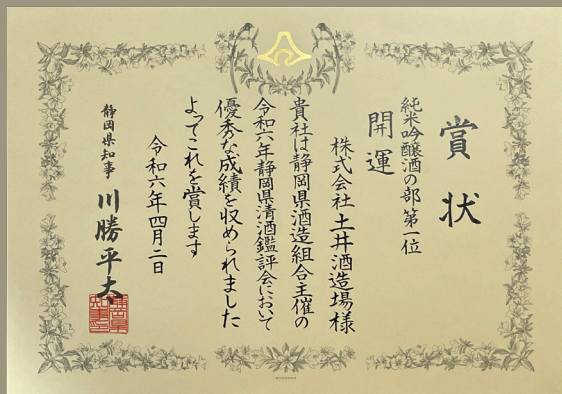 賞状
純米吟醸酒の部 第一位
開運
株式会社土井酒造場様
貴社は静岡県酒造組合主催の
令和六年静岡県清酒鑑評会において
優秀な成績を収められました
よってこれを賞します
令和六年四月二日
静岡県知事 川勝平太